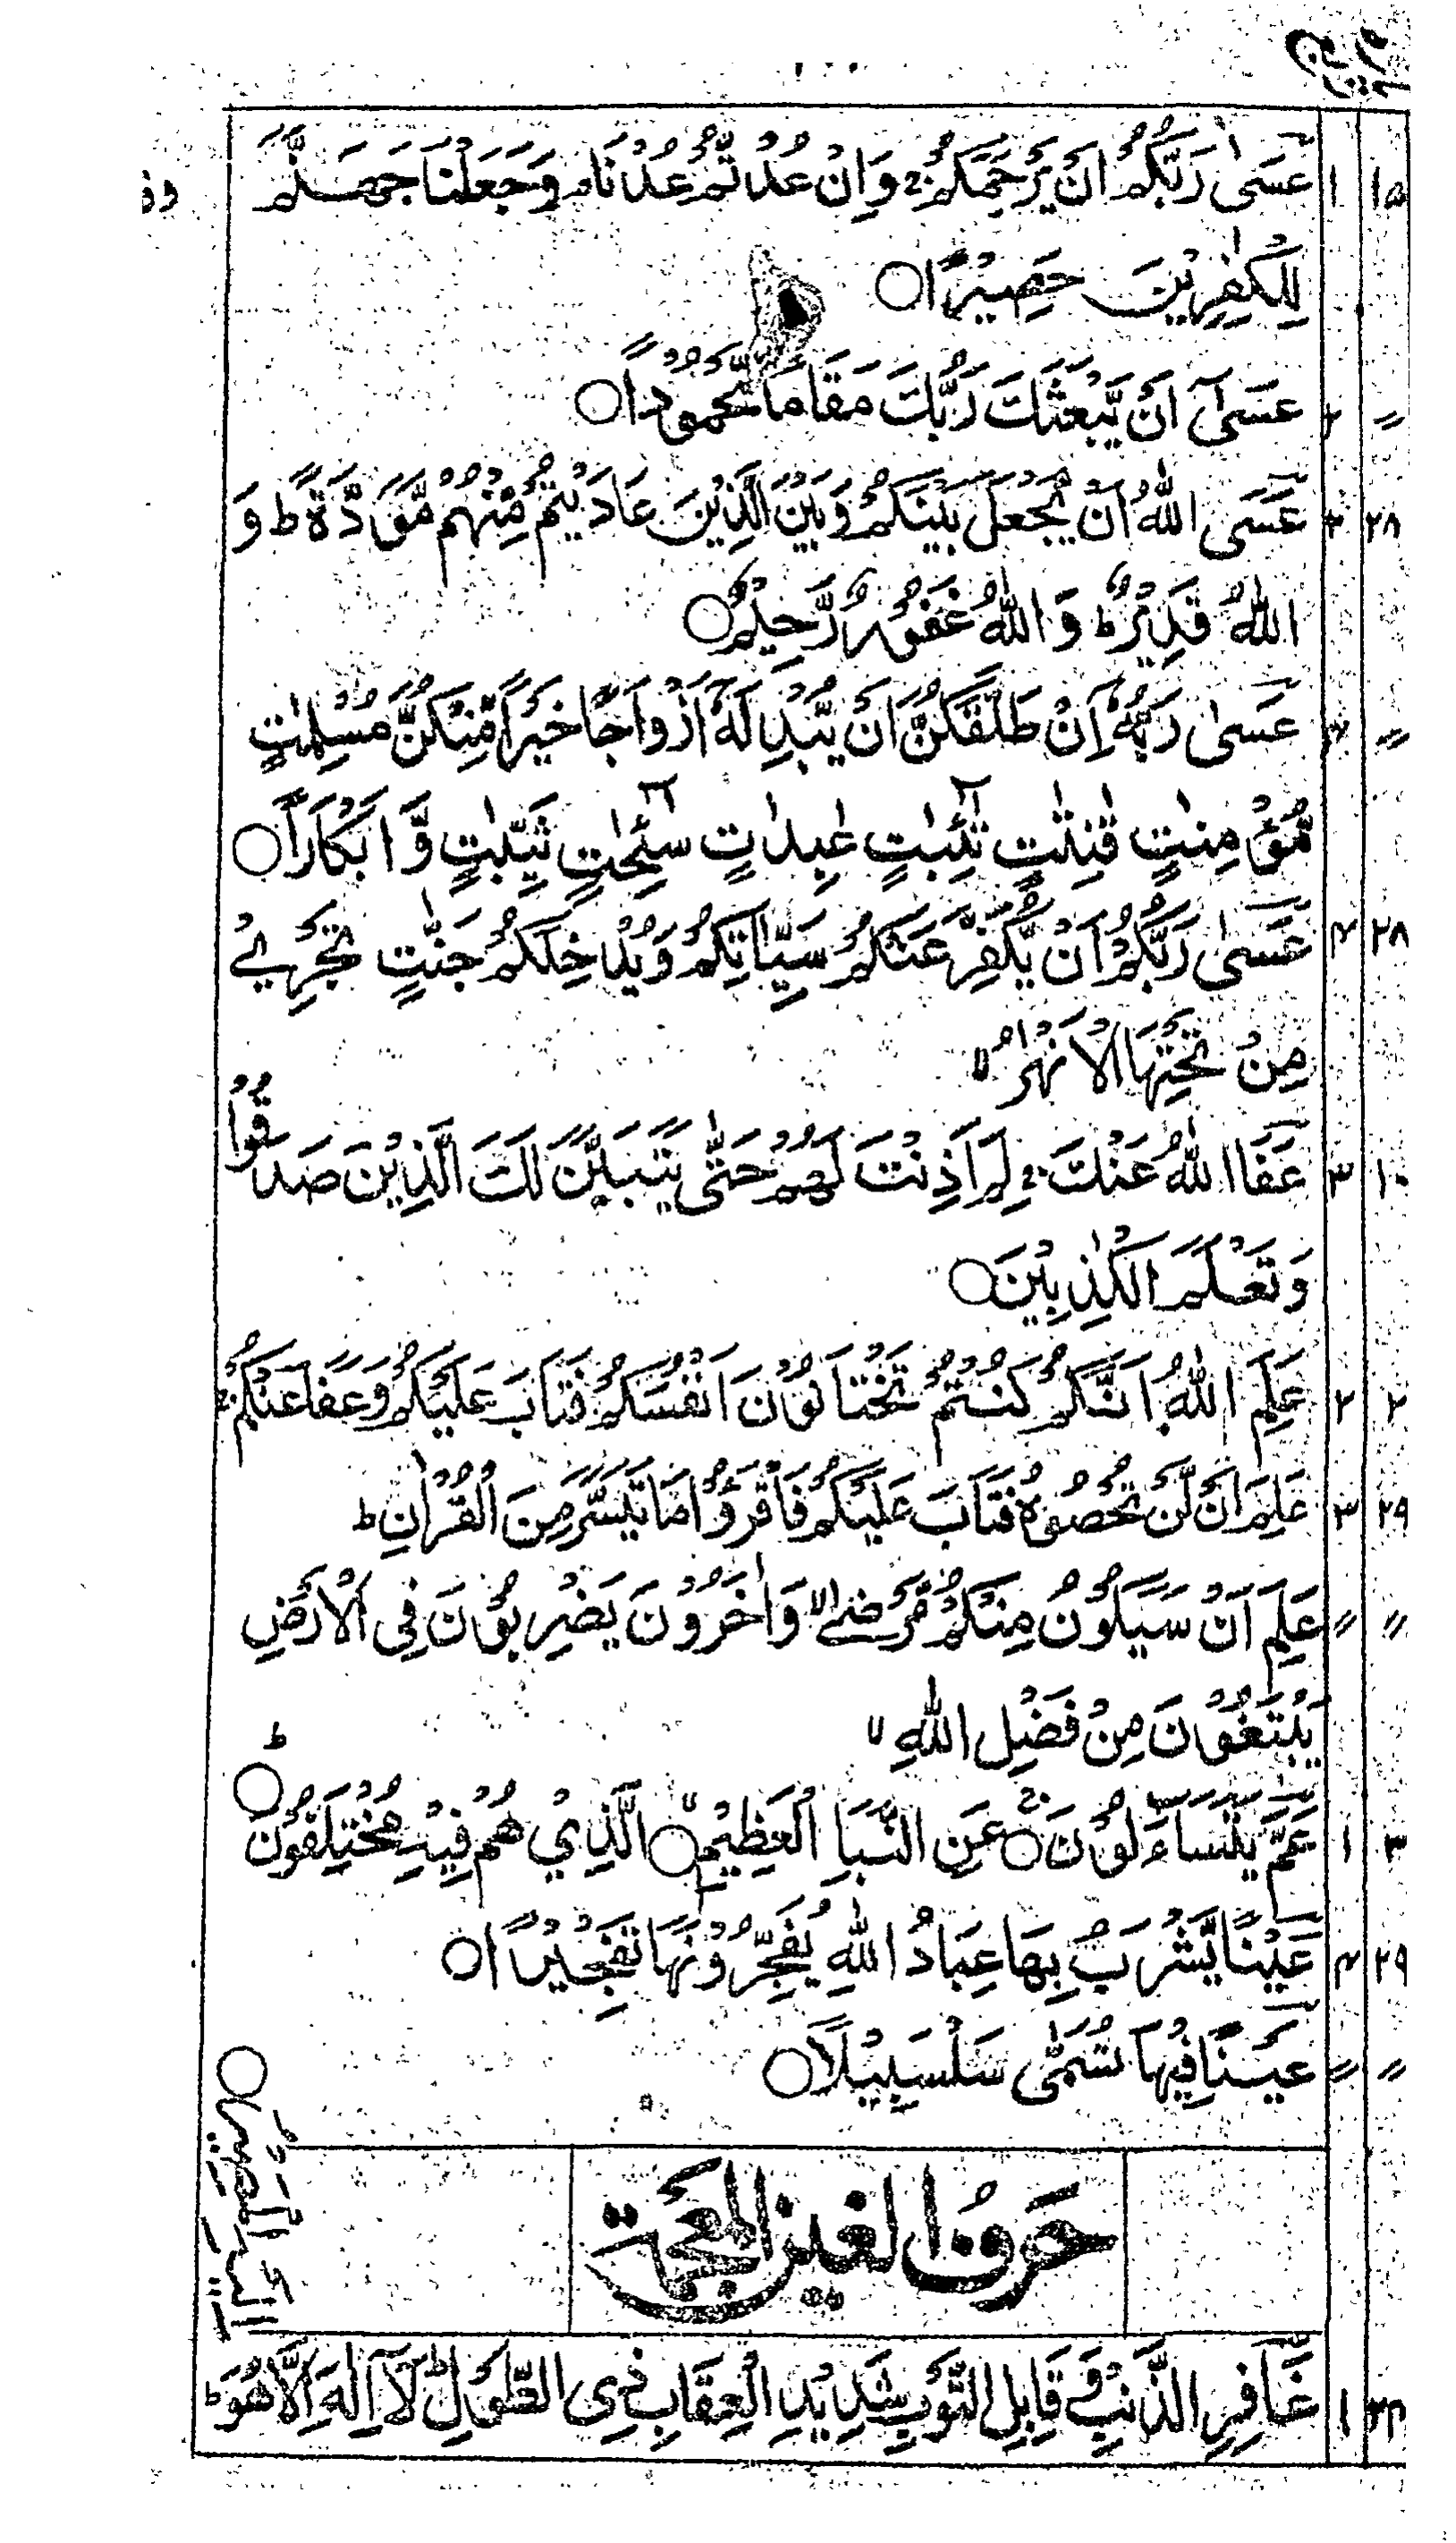 ۱۵ ۱ عَسٰى رَبُّكُمْ اَنْ يَّرْحَمَكُمْ ۚ وَاِنْ عُدْتُّمْ عُدْنَا ۘ وَجَعَلْنَا جَهَنَّمَ
لِلْكٰفِرِيْنَ حَصِيْرًا ○
〃 ۲ عَسٰٓى اَنْ يَّبْعَثَكَ رَبُّكَ مَقَامًا مَّحْمُوْدًا ○
۲۸ ۳ عَسَى اللّٰهُ اَنْ يَّجْعَلَ بَيْنَكُمْ وَبَيْنَ الَّذِيْنَ عَادَيْتُمْ مِّنْهُمْ مَّوَدَّةً ط وَ
اللّٰهُ قَدِيْرٌ ط وَاللّٰهُ غَفُوْرٌ رَّحِيْمٌ ○
〃 عَسٰى رَبُّهٗٓ اِنْ طَلَّقَكُنَّ اَنْ يُّبْدِلَهٗٓ اَزْوَاجًا خَيْرًا مِّنْكُنَّ مُسْلِمٰتٍ
مُّؤْمِنٰتٍ قٰنِتٰتٍ تٰٓئِبٰتٍ عٰبِدٰتٍ سٰٓئِحٰتٍ ثَيِّبٰتٍ وَّاَبْكَارًا ○
۲۸ ۴ عَسٰى رَبُّكُمْ اَنْ يُّكَفِّرَ عَنْكُمْ سَيِّاٰتِكُمْ وَيُدْخِلَكُمْ جَنّٰتٍ تَجْرِيْ
مِنْ تَحْتِهَا الْاَنْهٰرُ ۙ
۱۰ ۳ عَفَا اللّٰهُ عَنْكَ ۚ لِمَ اَذِنْتَ لَهُمْ حَتّٰى يَتَبَيَّنَ لَكَ الَّذِيْنَ صَدَقُوْا
وَتَعْلَمَ الْكٰذِبِيْنَ ○
۲ ۲ عَلِمَ اللّٰهُ اَنَّكُمْ كُنْتُمْ تَخْتَانُوْنَ اَنْفُسَكُمْ فَتَابَ عَلَيْكُمْ وَعَفَا عَنْكُمْ ۚ
۲۹ ۳ عَلِمَ اَنْ لَّنْ تُحْصُوْهُ فَتَابَ عَلَيْكُمْ فَاقْرَءُوْا مَا تَيَسَّرَ مِنَ الْقُرْاٰنِ ط
〃 〃 عَلِمَ اَنْ سَيَكُوْنُ مِنْكُمْ مَّرْضٰى ۙ وَاٰخَرُوْنَ يَضْرِبُوْنَ فِى الْاَرْضِ
يَبْتَغُوْنَ مِنْ فَضْلِ اللّٰهِ ۙ
۳ ۱ عَمَّ يَتَسَآءَلُوْنَ ۚ ○ عَنِ النَّبَاِ الْعَظِيْمِ ۙ ○ الَّذِيْ هُمْ فِيْهِ مُخْتَلِفُوْنَ ط ○
۲۹ ۴ عَيْنًا يَّشْرَبُ بِهَا عِبَادُ اللّٰهِ يُفَجِّرُوْنَهَا تَفْجِيْرًا ○
〃 〃 عَيْنًا فِيْهَا تُسَمّٰى سَلْسَبِيْلًا ○
حَرْفُ الغین المعجمۃ
۱ غَافِرِ الذَّنْۢبِ وَقَابِلِ التَّوْبِ شَدِيْدِ الْعِقَابِ ذِى الطَّوْلِ ط لَآ اِلٰهَ اِلَّا هُوَ ط
اِلَيْهِ الْمَصِيْرُ ○